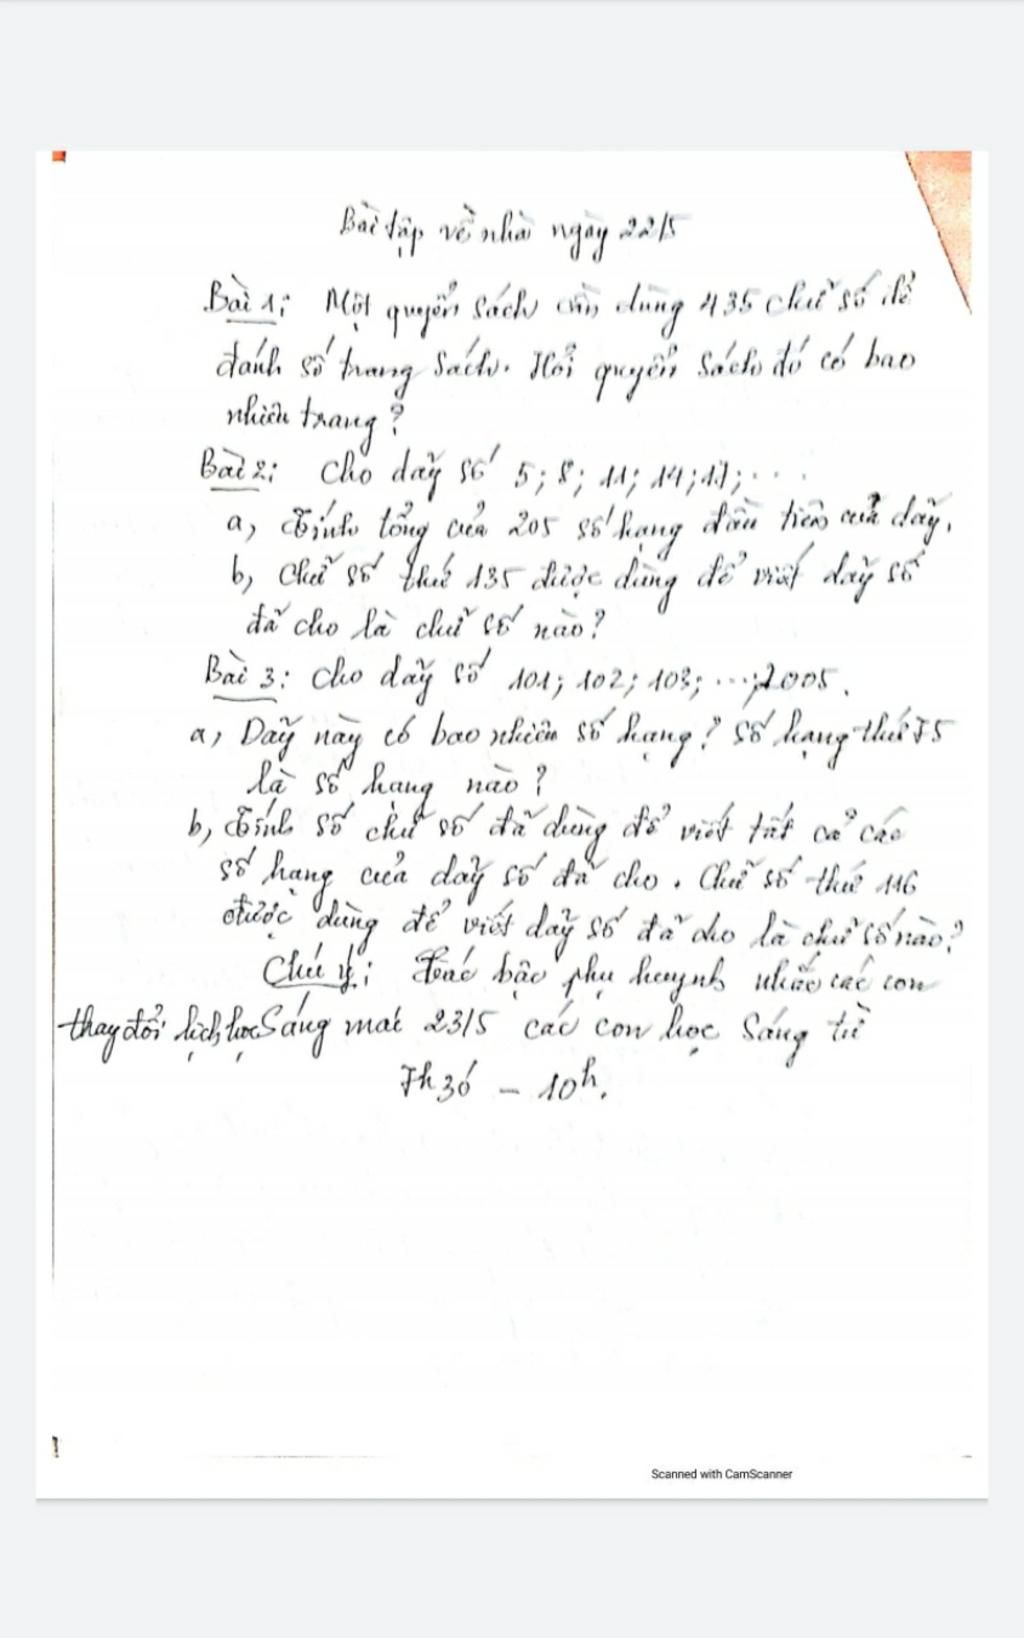 Bài tập về nhà ngày 22/5
Bài 1: Một quyển sách cần dùng 435 chữ số để
đánh số trang sách. Hỏi quyển sách đó có bao
nhiêu trang?
Bài 2: Cho dãy số 5; 8; 11; 14; 17; ....
a, Tính tổng của 205 số hạng đầu tiên của dãy.
b, Chữ số thứ 135 được dùng để viết dãy số
đã cho là chữ số nào?
Bài 3: Cho dãy số 101; 102; 103; ...; 2005.
a, Dãy này có bao nhiêu số hạng? Số hạng thứ 75
là số hạng nào?
b, Tính số chữ số đã dùng để viết tất cả các
số hạng của dãy số đã cho. Chữ số thứ 116
được dùng để viết dãy số đã cho là chữ số nào?
Chú ý: bậc phụ huynh nhắc các con
thay đổi lịch học Sáng mai 23/5 các con học Sáng từ
7h30 - 10h.
Scanned with CamScanner